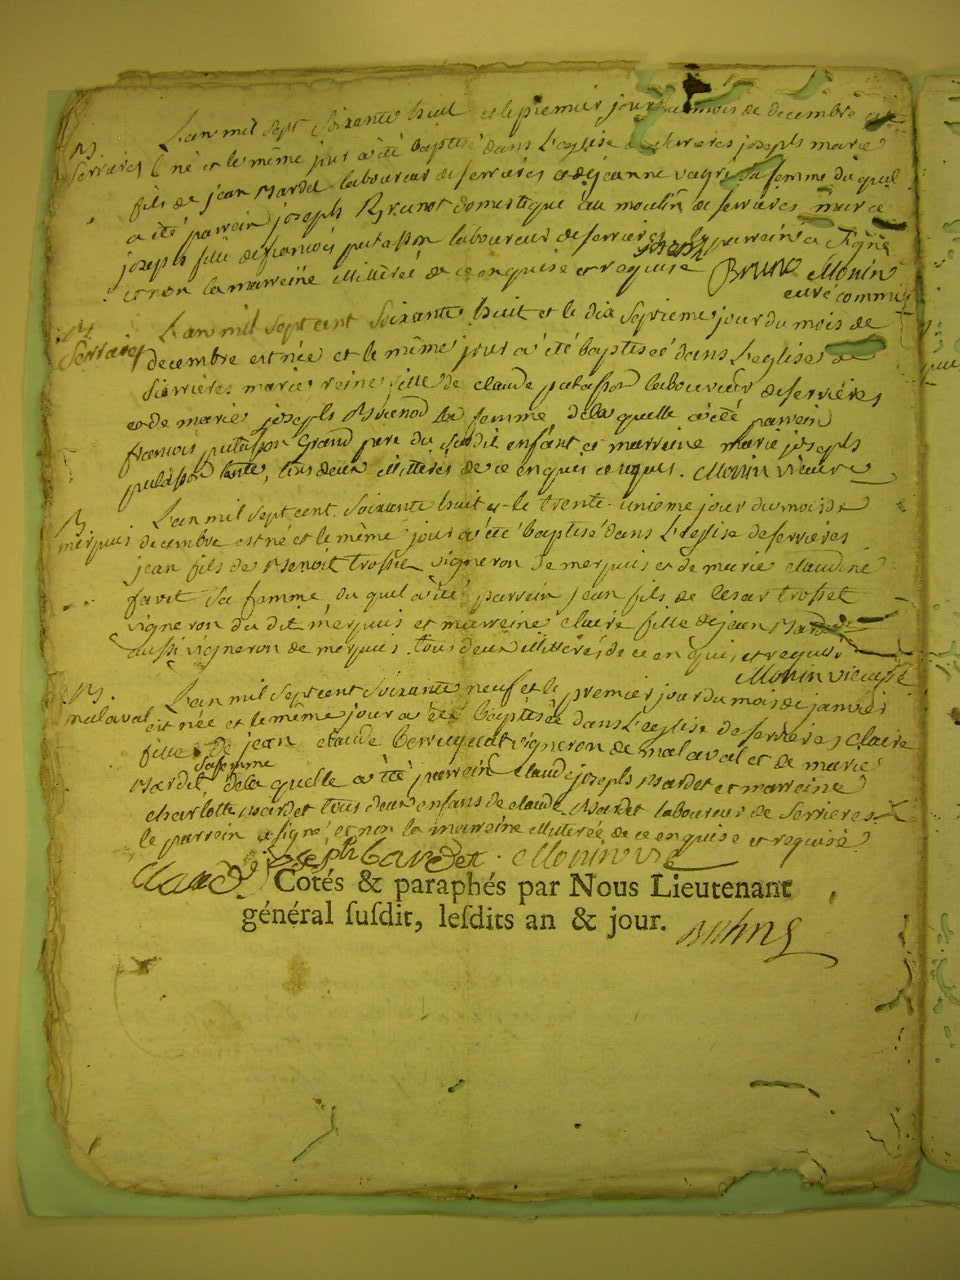 B
L'an mil sept soixante huit et le premier jour du mois de decembre est
serrieres né et le même jour a été baptisé dans L'eglise de serrieres joseph marie
fils de jean Mardel laboureur de serrieres et de jeanne sa femme du quel
a été parrein joseph Brunot domestique au moulin de serrieres marie
joseph fille de francois putasson laboureur de serrieres le parrein a signé
et non la marreine illitérée de ce enquise et requise joseph Bruno Monin
curé commis
B
L'an mil sept cent soixante huit et le dix septieme jour du mois de
serrieres decembre est née et le même jour a été baptisée dans L'eglise de
Serrières marie reine fille de claude putasson laboureur de serrières
et de marie joseph sa femme de la quelle a été parrein
francois putasson grand pere du susdit enfant et marreine marie joseph
putasson tante, tous deux illitterés de ce enquis et requis. Monin vicaire
B
L'an mil sept cent soixante huit et le trente unieme jour du mois de
merpuis decembre est né et le même jour a été baptisé dans L'eglise de serrieres
jean fils de Benoit trosset vigneron de merpuis et de marie claudine
favet sa femme, du quel a été parrein jean fils de trosset
vigneron du dit merpuis et marreine claire fille de jean
aussi vigneron de merpuis. tous deux illitterés de ce enquis et requis.
Monin vicaire
de B.
L'an mil sept cent soixante neuf et le premier jour du mois de janvier
malaval est née et le même jour a été baptisée dans L'eglise de serrieres claire
fille de jean claude vigneron de malaval et de marie
sa femme
Mardel de la quelle a été parrein claude joseph Bardet et marreine
charlotte Bardet tous deux enfans de claude Bardet laboureur de serrieres.
le parrein a signé et non la marreine illiterée de ce enquise et requise
Claude joseph bardet. Monin vic
Cotés & paraphés par Nous Lieutenant
général ſuſdit, leſdits an & jour.